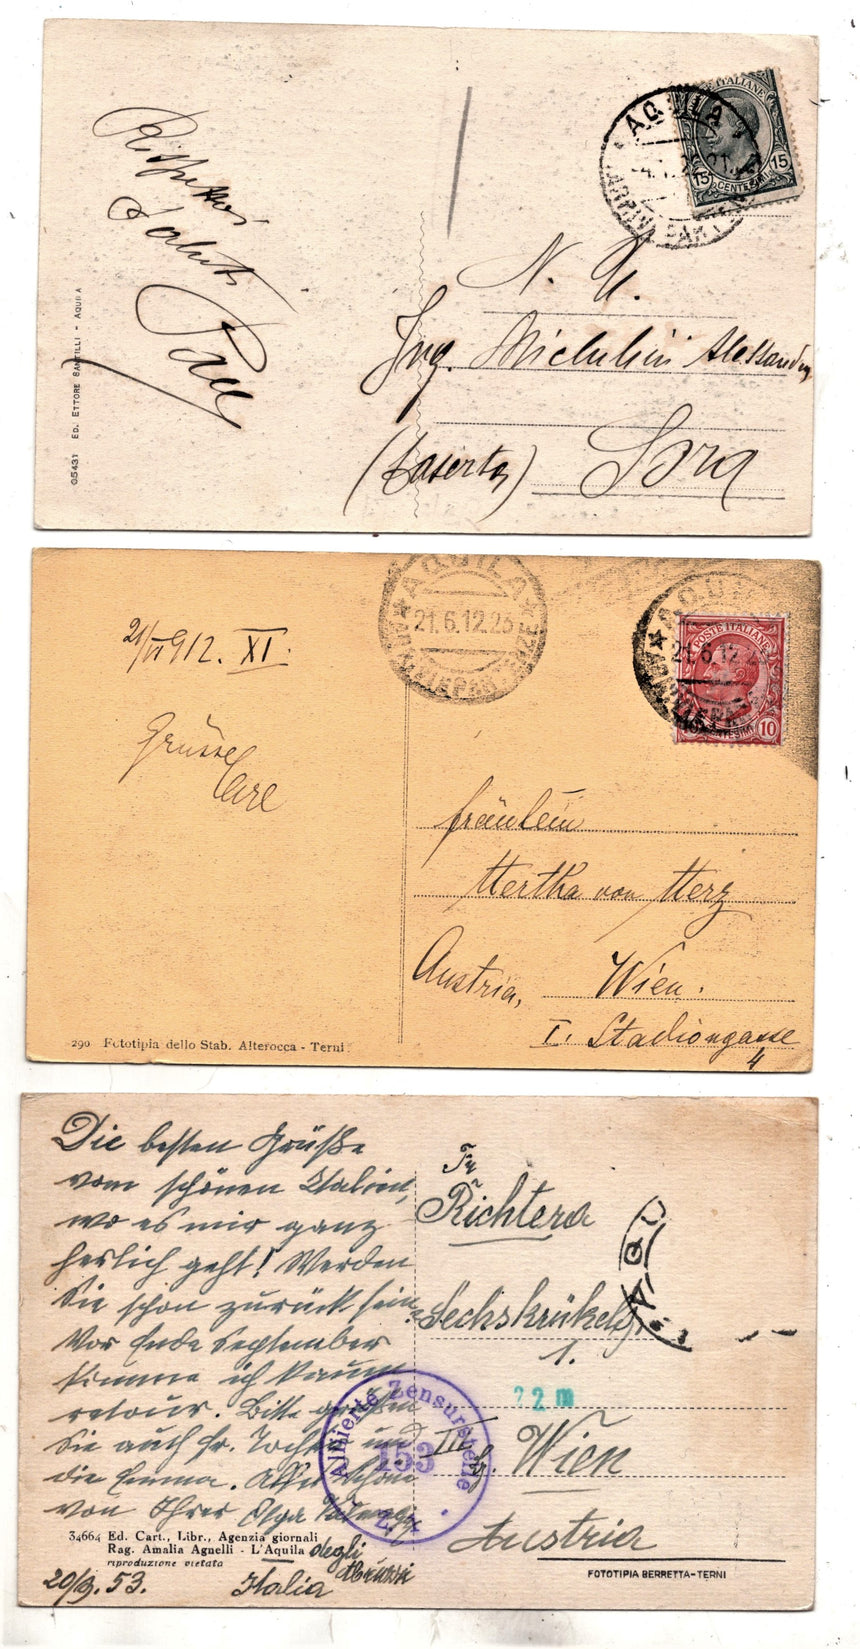 Rispettosi
Saluti
G5431 ED. ETTORE SANTILLI - AQUILA
AQUILA
POSTE ITALIANE
15 CENTESIMI 15
N. U.
Ing. Michelini Alessandro
(Caserta) Sora
21/VI 912. XI.
Grüsse
AQUILA
21.6.12.23
AQUILA
21.6.12.23
POSTE ITALIANE
10
Fräulein
Hertha von Herz
Austria, Wien.
I. Stadiongasse
4
290 Fototipia dello Stab. Alterocca - Terni
Die besten Grüße
vom schönen Italien,
wo es mir ganz
herlich geht! Werden
Sie schon zurück sein?
Vor Ende September
komme ich kaum
retour. Bitte grüßen
Sie auch Fr. Tochter und
die Emma. Alles Schöne
von Ihrer Olga
34664 Ed. Cart., Libr., Agenzia giornali
Rag. Amalia Agnelli - L'Aquila degli
riproduzione vietata Abruzzi
20/9. 53. Italia
Fr
Richtera
Sechskrükelg.
1.
22 m
III Bz. Wien
Austria
AQU
Alliierte Zensurstelle
153
FOTOTIPIA BERRETTA-TERNI